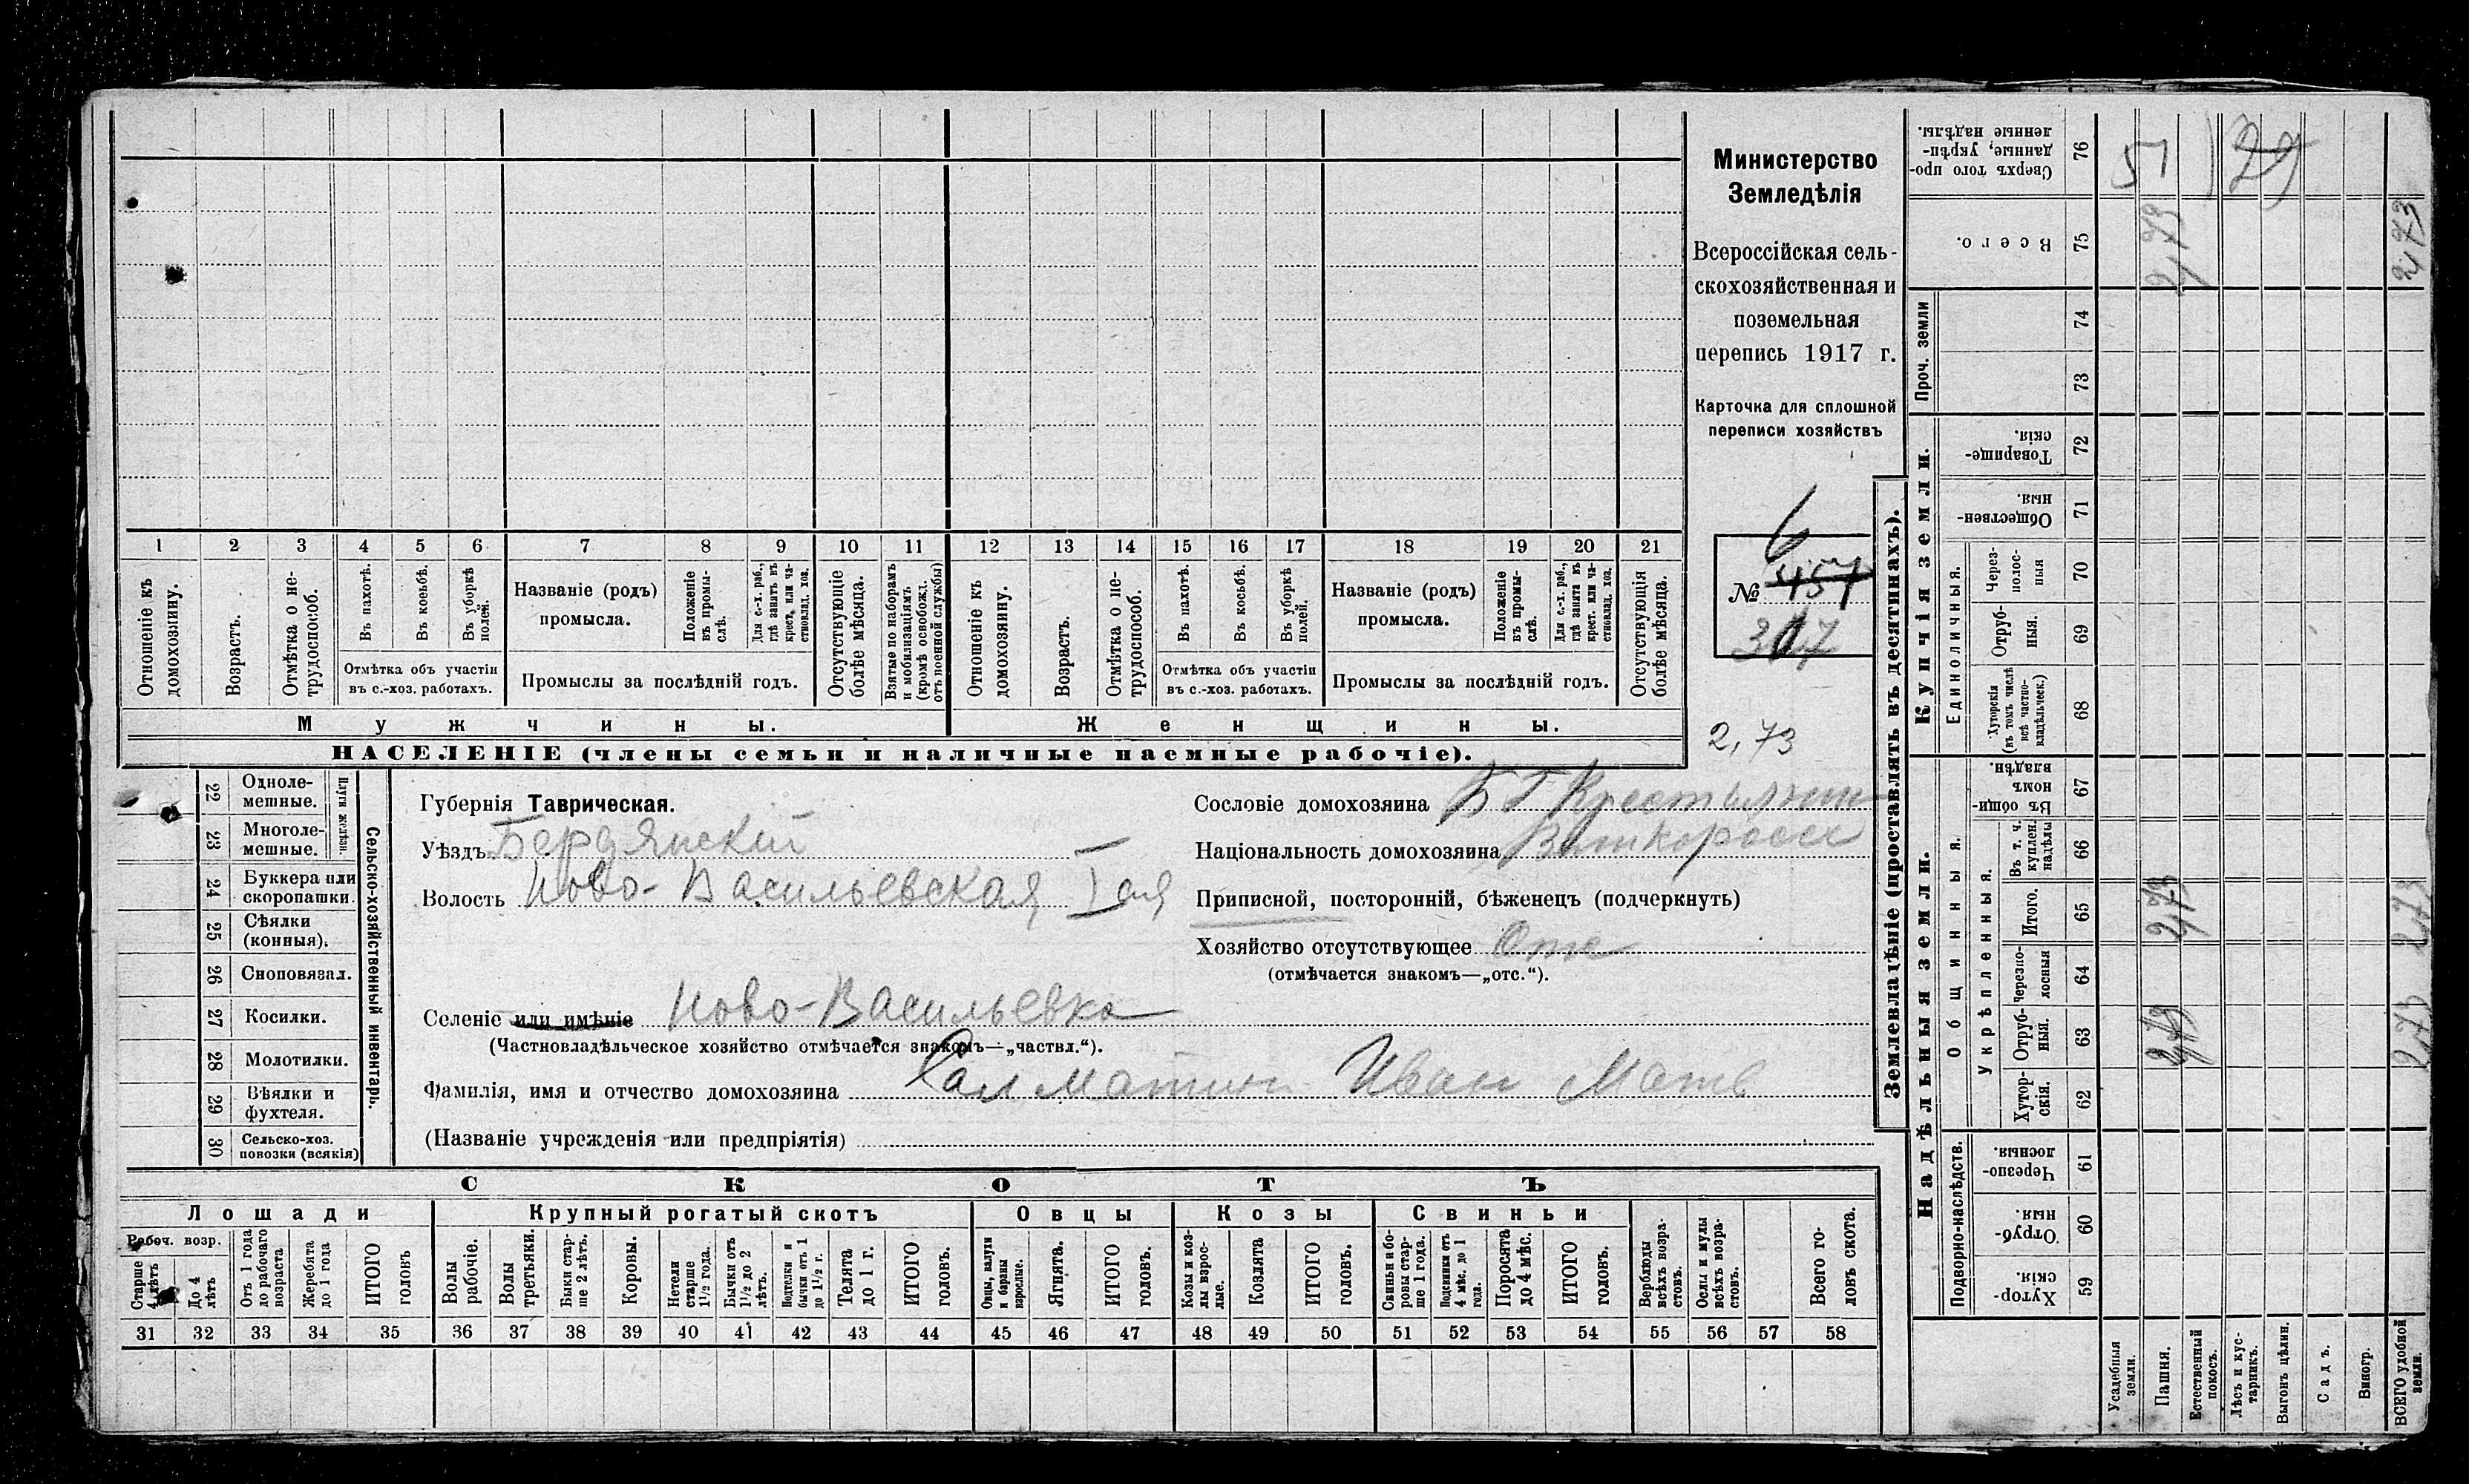 Министерство
Земледѣлія
Всероссійская сель-
скохозяйственная и
поземельная
перепись 1917 г.
Карточка для сплошной
переписи хозяйствъ
6
№ 457
2,73
1 2 3 4 5 6 7 8 9 10 11 12 13 14 15 16 17 18 19 20 21
Отношеніе къ домохозяину.
Возрастъ.
Отмѣтка о не-трудоспособ.
Въ пахотѣ.
Въ косьбѣ.
Въ уборкѣ полей.
Отмѣтка объ участіи
въ с.-хоз. работахъ.
Названіе (родъ)
промысла.
Положеніе въ промы-слѣ.
Для с.-х. раб., гдѣ занятъ въ крест. или ча-стновлад. хоз.
Промыслы за послѣдній годъ.
Отсутствующіе болѣе мѣсяца.
Взятые по наборамъ и мобилизаціямъ (кромѣ освобожд. отъ военной службы)
Отношеніе къ домохозяину.
Возрастъ.
Отмѣтка о не-трудоспособ.
Въ пахотѣ.
Въ косьбѣ.
Въ уборкѣ полей.
Отмѣтка объ участіи
въ с.-хоз. работахъ.
Названіе (родъ)
промысла.
Положеніе въ промы-слѣ.
Для с.-х. раб., гдѣ занята въ крест. или ча-стновлад. хоз.
Промыслы за послѣдній годъ.
Отсутствующія болѣе мѣсяца.
Мужчины.
Женщины.
НАСЕЛЕНІЕ (члены семьи и наличные наемные рабочіе).
22 Одноле-мешные.
23 Многоле-мешные.
Плуги желѣзн.
24 Буккера или скоропашки.
25 Сѣялки (конныя).
26 Сноповязал.
27 Косилки.
28 Молотилки.
29 Вѣялки и фухтеля.
30 Сельско-хоз. повозки (всякія)
Сельско-хозяйственный инвентарь.
Губернія Таврическая.
Уѣздъ Бердянский
Волость Ново-Васильевская I ая
Селеніе или имѣніе Ново-Васильевка
(Частновладѣльческое хозяйство отмѣчается знакомъ—„частвл.“).
Фамилія, имя и отчество домохозяина Салматин Иван Матв
(Названіе учрежденія или предпріятія)
Сословіе домохозяина Б Г Крестьянин
Національность домохозяина Великоросс
Приписной, посторонній, бѣженец (подчеркнуть)
Хозяйство отсутствующее Отс
(отмѣчается знакомъ—„отс.“).
СКОТЪ
Лошади
Крупный рогатый скотъ
Овцы
Козы
Свиньи
Рабоч. возр.
Старше 4 лѣтъ
До 4 лѣтъ
Отъ 1 года до рабочаго возраста
Жеребята до 1 года
ИТОГО головъ
Волы рабочіе.
Волы третьяки.
Быки стар-ше 2 лѣтъ.
Коровы.
Нетели старше 1½ года.
Бычки отъ 1½ до 2 лѣтъ.
Подтелки и бычки отъ 1 до 1½ г.
Телята до 1 г.
ИТОГО головъ.
Овцы, валухи и бараны взрослые.
Ягнята.
ИТОГО головъ.
Козы и коз-лы взрос-лые.
Козлята
ИТОГО головъ.
Свиньи и бо-ровы стар-ше 1 года.
Подсвинки отъ 4 мѣс. до 1 года.
Поросята до 4 мѣс.
ИТОГО головъ.
Верблюды всѣхъ возра-стовъ.
Ослы и мулы всѣхъ возра-стовъ.
Всего го-ловъ скота.
31 32 33 34 35 36 37 38 39 40 41 42 43 44 45 46 47 48 49 50 51 52 53 54 55 56 57 58
Землевладѣніе (проставлять въ десятинахъ).
Надѣльныя земли.
Купчія земли.
Проч. земли
Подворно-наслѣдств.
Общинныя.
Укрѣпленныя.
Единоличныя.
Сверхъ того про-данные, укрѣп-ленные надѣлы. 76 51
Всего. 75 2,73 2,73
74
73
Товарище-скія. 72
Обществен-ныя. 71
Через-полос-ныя 70
Отруб-ныя. 69
Хуторскія (въ томъ числѣ всѣ частно-владѣльческ.) 68
Въ общи-номъ владѣн. 67
Въ т. ч. куплен. надѣлы 66
Итого. 65 2,73 2,73
Черезпо-лосныя 64
Отруб-ныя. 63 2,73 2,73
Хутор-скія. 62
Черезпо-лосныя. 61
Отруб-ныя. 60
Хутор-скія. 59
Усадебныя земли.
Пашня.
Естественный покосъ.
Лѣсъ и кус-тарникъ.
Выгонъ цѣлин.
Садъ.
Виногр.
ВСЕГО удобной земли.